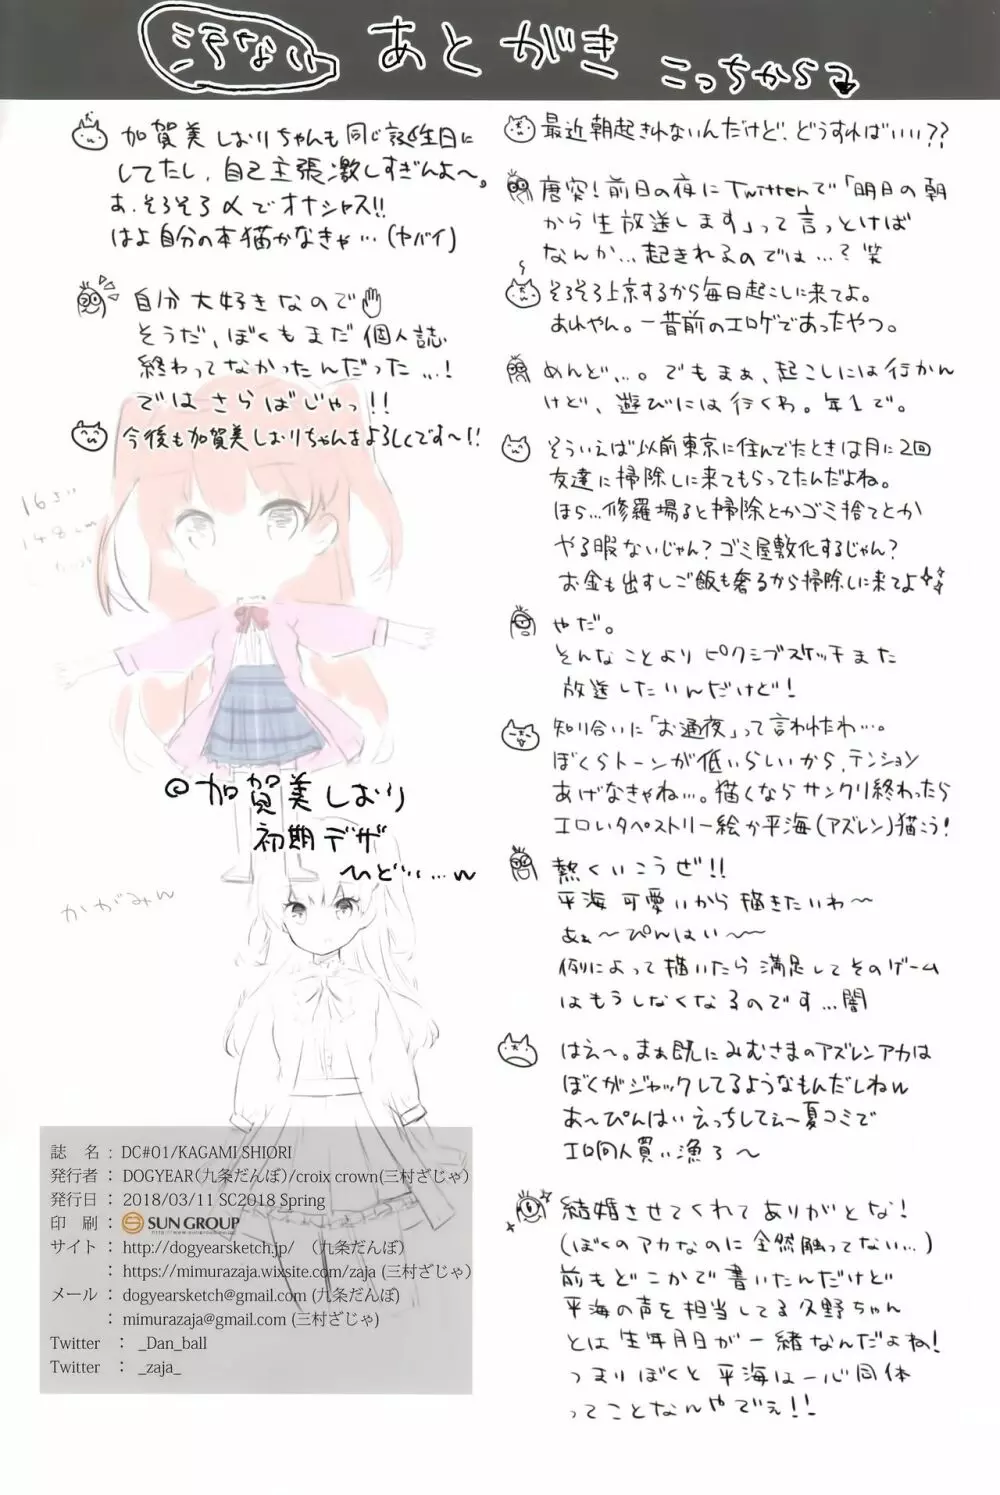 汚ない あとがき こっちから
最近朝起きれないんだけど、どうすればいい??
唐突!前日の夜にTwitterで「明日の朝
から生放送します」って言っとけば
なんか…起きれるのでは…?笑
そろそろ上京するから毎日起こしに来てよ。
あれやん。一昔前のエロゲであったやつ。
めんど…。でもまぁ、起こしには行かん
けど、遊びには行くわ。年1で。
そういえば以前東京に住んでたときは月に2回
友達に掃除しに来てもらってたんだよね。
ほら…修羅場ると掃除とかゴミ捨てとか
やる暇ないじゃん?ゴミ屋敷化するじゃん?
お金も出すしご飯も奢るから掃除しに来てよ
やだ。
そんなことよりピクシブスケッチまた
放送したいんだけど!
知り合いに「お通夜」って言われたわ…。
ぼくらトーンが低いらしいから、テンション
あげなきゃね…。描くならサンクリ終わったら
エロいタペストリー絵か平海(アズレン)描こう!
熱くいこうぜ!!
平海可愛いから描きたいわ〜
あぁ〜ぴんはい〜
例によって描いたら満足してそのゲーム
はもうしなくなるのです…闇
はえ〜。まぁ既にみむさまのアズレンアカは
ぼくがジャックしてるようなもんだしねw
あ〜ぴんはいえっちしてぇ〜夏コミで
エロ同人買い漁ろ〜
結婚させてくれてありがとな!
(ぼくのアカなのに全然触ってない…)
前もどこかで書いたんだけど
平海の声を担当してる久野ちゃん
とは生年月日が一緒なんだよね!
つまりぼくと平海は一心同体
ってことなんやでぇ!!
加賀美しおりちゃんも同じ誕生日に
してたし、自己主張激しすぎんよ〜。
あ、そろそろ〆でオナシャス!!
はよ自分の本描かなきゃ…(ヤバイ)
自分大好きなので
そうだ、ぼくもまだ個人誌
終わってなかったんだった…!
ではさらばじゃっ!!
今後も加賀美しおりちゃんをよろしくです〜!!
16さい
148cm
加賀美しおり
初期デザ
ひどい…w
かがみん
誌 名 : DC#01/KAGAMI SHIORI
発行者 : DOGYEAR(九条だんぼ)/croix crown(三村ざじゃ)
発行日 : 2018/03/11 SC2018 Spring
印 刷 : SUN GROUP
サイト : http://dogyearsketch.jp/ (九条だんぼ)
: https://mimurazaja.wixsite.com/zaja (三村ざじゃ)
メール : dogyearsketch@gmail.com (九条だんぼ)
: mimurazaja@gmail.com (三村ざじゃ)
Twitter : _Dan_ball
Twitter : _zaja_